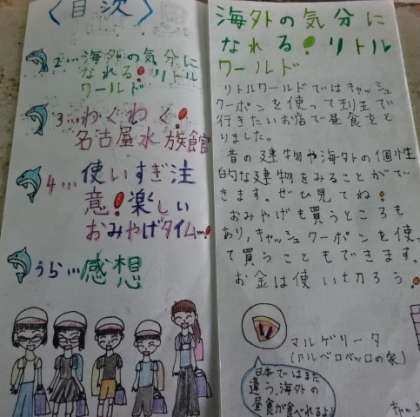 〈目次〉
2…海外の気分に
なれる!リトル
ワールド
3…わくわく!
名古屋水族館
4…使いすぎ注
意!楽しい
おみやげタイム!
うら…感想
海外の気分に
なれる!リトル
ワールド
リトルワールドではキャッシュ
クーポンを使って
行きたいお店で昼食をと
りました。
昔の建物や海外の個性
的な建物をみることがで
きます。ぜひ見てね!
おみやげも買うところも
あり、キャッシュクーポンを使っ
て買うこともできます。
お金は使い切ろう。
マルゲリータ
(アルベロベッロの家)
日本ではまた
違う、海外の
昼食が食べれるよ